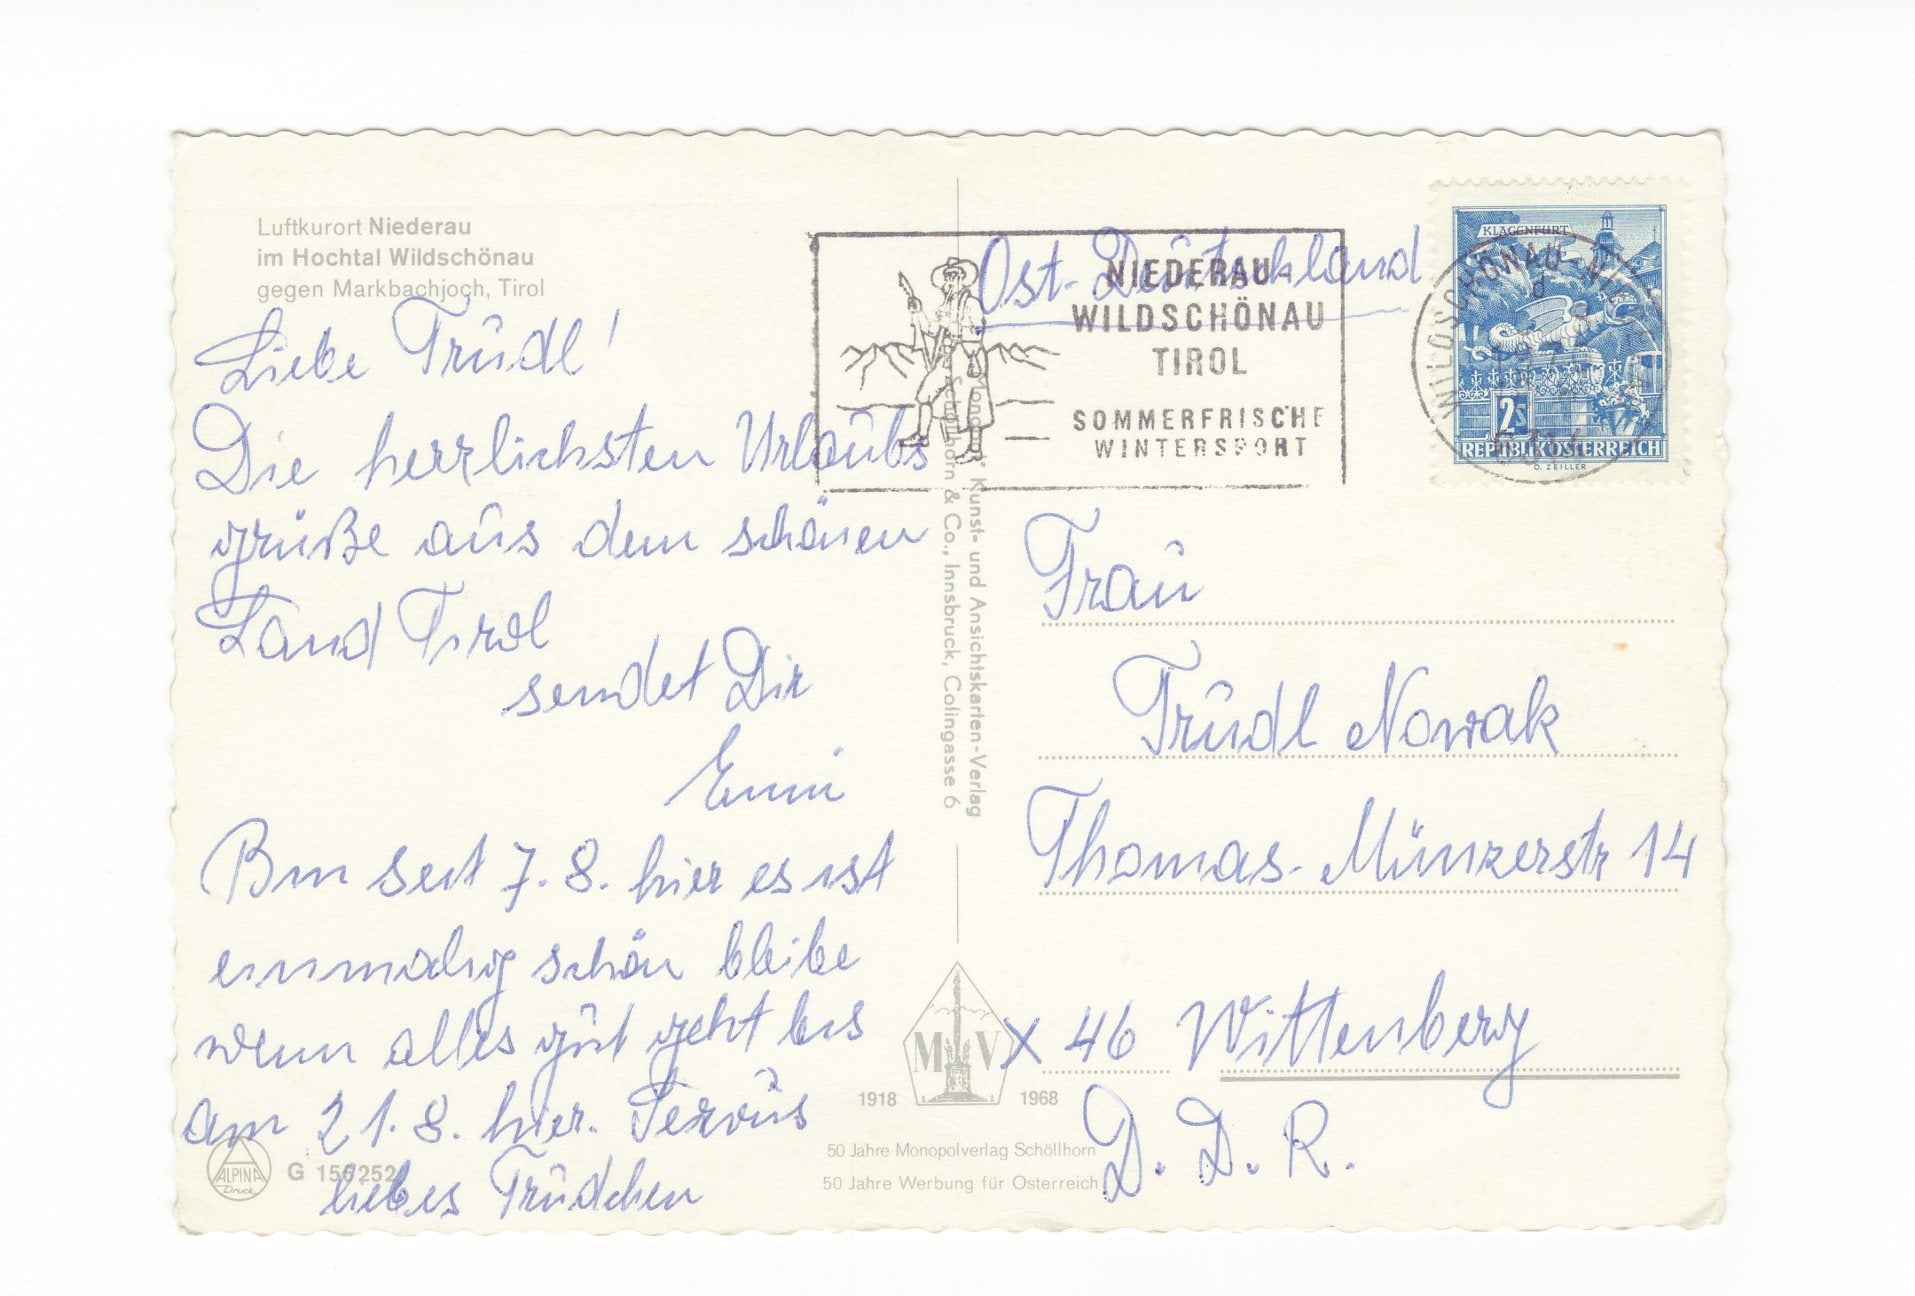 Luftkurort Niederau
im Hochtal Wildschönau
gegen Markbachjoch, Tirol
Liebe Trudl!
Die herrlichsten Urlaubs
grüße aus dem schönen
Land Tirol
sendet Dir
Emmi
Bin seit 7.8. hier es ist
einmalig schön bleibe
wenn alles gut geht bis
am 21.8. hier. Servus
liebes Trudchen
ALPINA
Druck
G 156252
"Monopol" Kunst- und Ansichtskarten-Verlag
Schöllhorn & Co., Innsbruck, Colingasse 6
M V
1918 1968
50 Jahre Monopolverlag Schöllhorn
50 Jahre Werbung für Österreich
Ost-Deutschland
NIEDERAU-
WILDSCHÖNAU
TIROL
SOMMERFRISCHE
WINTERSPORT
KLAGENFURT
2S
REPUBLIK ÖSTERREICH
O. ZEILLER
WILDSCHÖNAU
Frau
Trudl Nowak
Thomas-Münzerstr 14
X 46 Wittenberg
D.D.R.